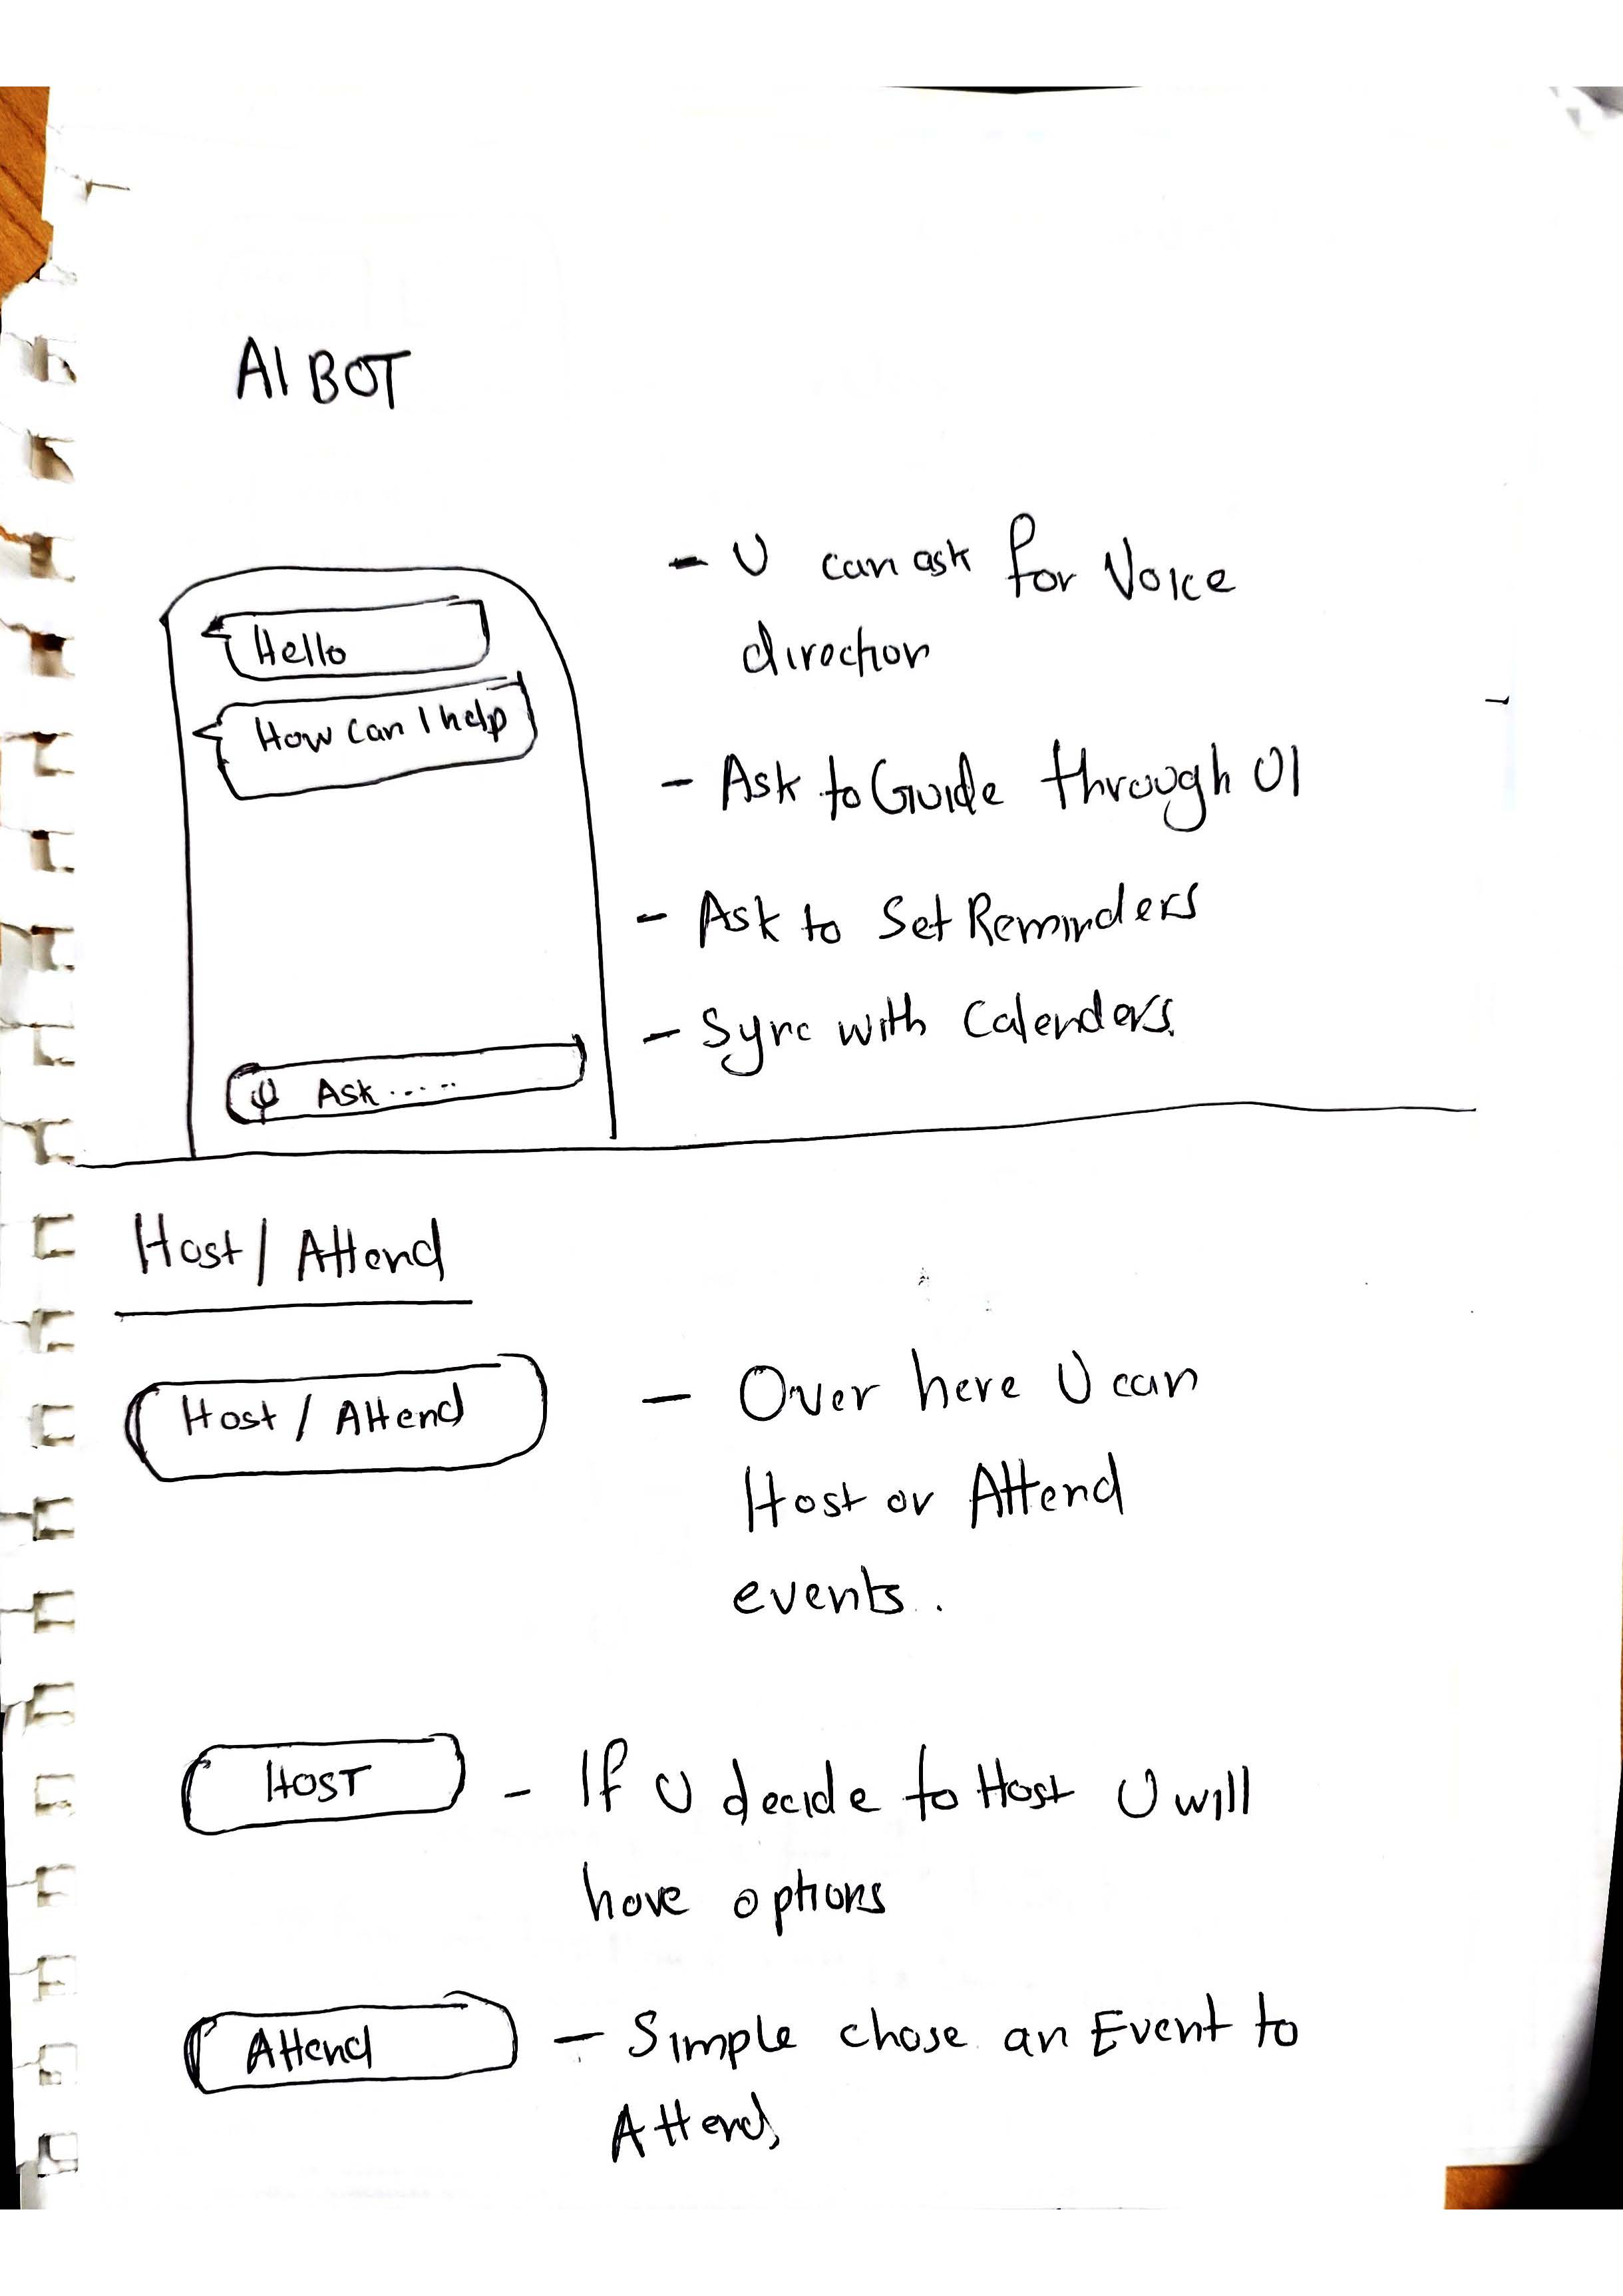 AI BOT
Hello
How can I help
Ask.....
- U can ask for Voice
direction
- Ask to Guide through UI
- Ask to Set Reminders
- Sync with Calenders.
Host / Attend
Host / Attend
- Over here U can
Host or Attend
events..
HOST
- If U decide to Host U will
have options
Attend
- Simple chose an Event to
Attend,